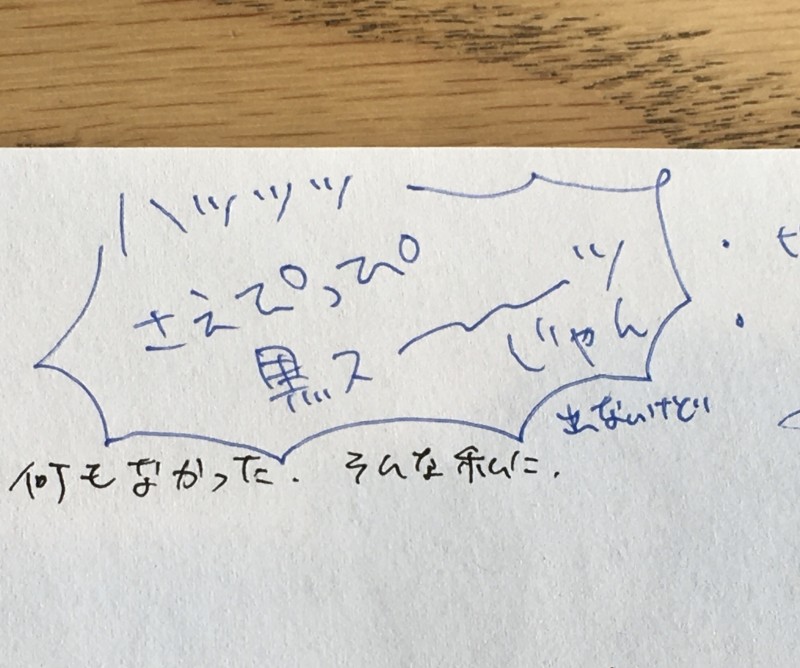 ハッッッ
さえぴっぴ
黒スーーツ
じゃん
出ないけど
何もなかった. そんな私に.